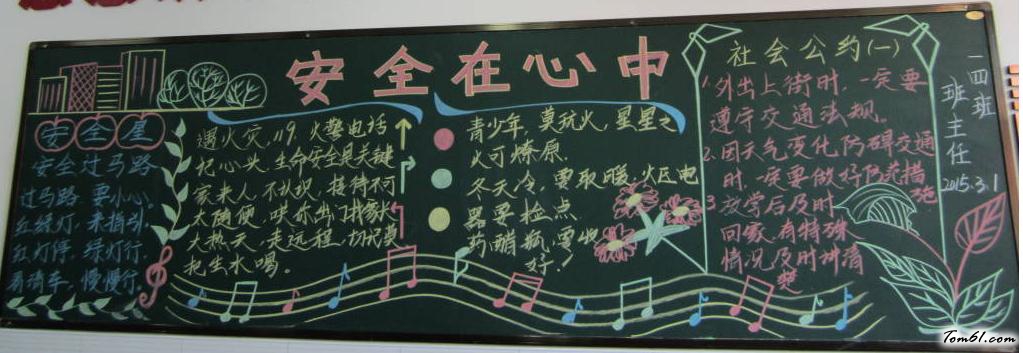 安全在心中
安全屋
安全过马路
过马路，要小心，
红绿灯，来指引，
红灯停，绿灯行，
看清车，慢慢行。
遇火灾，119，火警电话
记心头，生命安全是关键
家来人，不认识，接待不可
太随便，哄你出门找家长
大热天，走远程，切记要
把生水喝。
青少年，莫玩火，星星之
火可燎原。
冬天冷，要取暖，火炉电
器要检点
好！
社会公约(一)
1.外出上街时，一定要
遵守交通法规。
2.因天气变化防碍交通
时，一定要做好防范措
施
3.放学后及时
回家，有特殊
情况及时讲清
楚
一四班
班主任
2015.3.1
Tom61.com